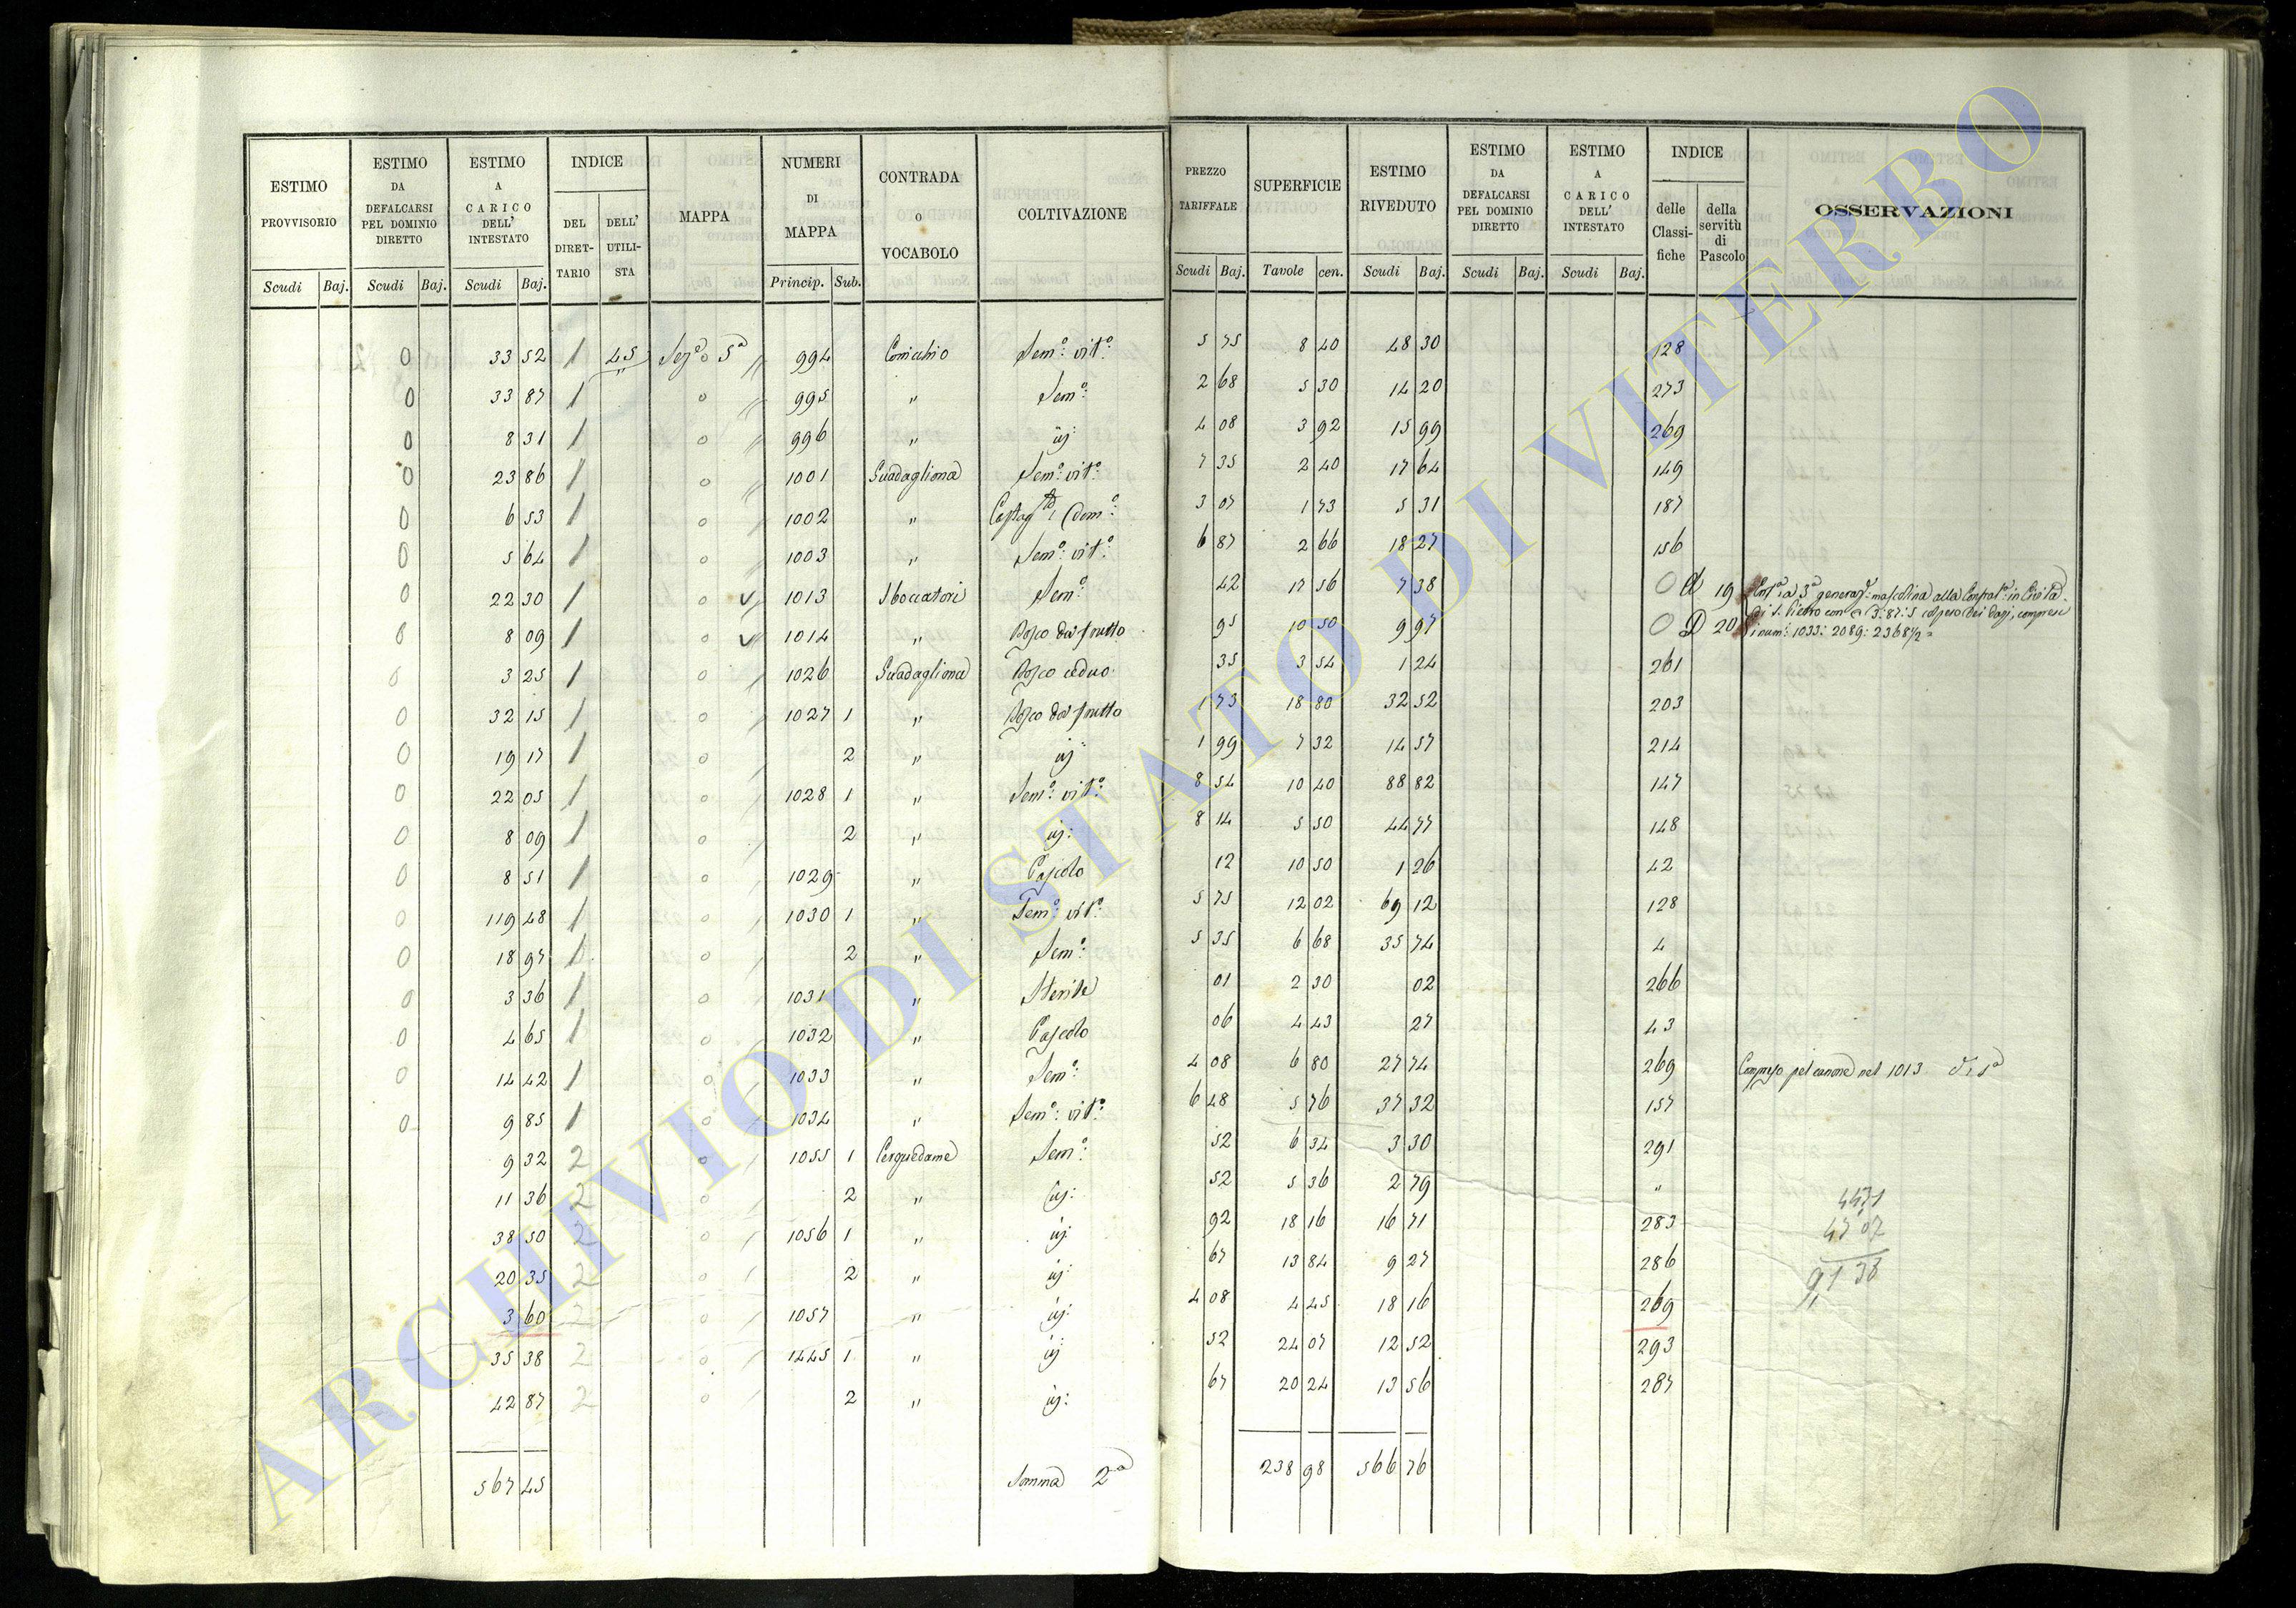 ESTIMO PROVVISORIO Scudi Baj. | ESTIMO DA DEFALCARSI PEL DOMINIO DIRETTO Scudi Baj. | ESTIMO A CARICO DELL' INTESTATO Scudi Baj. | INDICE DEL DIRET-TARIO DELL' UTILI-STA | MAPPA | NUMERI DI MAPPA Princip. Sub. | CONTRADA O VOCABOLO | COLTIVAZIONE | PREZZO TARIFFALE Scudi Baj. | SUPERFICIE Tavole cen. | ESTIMO RIVEDUTO Scudi Baj. | ESTIMO DA DEFALCARSI PEL DOMINIO DIRETTO Scudi Baj. | ESTIMO A CARICO DELL' INTESTATO Scudi Baj. | INDICE delle Classi-fiche della servitù di Pascolo | OSSERVAZIONI
0 33 52 1 45 5a 994 Sem: vit: 5 75 8 40 48 30 128
0 33 87 1 0 995 " Sem: 2 68 5 30 14 20 273
0 8 31 1 0 996 " 4 08 3 92 15 99 269
0 23 86 1 0 1001 Guadagliona Sem: vit: 7 35 2 40 17 64 149
0 6 53 1 0 1002 " 3 07 1 73 5 31 187
0 5 64 1 0 1003 " Sem: vit: 6 87 2 66 18 27 156
0 22 30 1 0 1013 Sboccatori Sem: 42 17 56 7 38 19 3a generaz: mascolina alla
0 8 09 1 0 1014 " Bosco da frutto 95 10 50 9 97 20 di S. Pietro con 3:87:5 compresi i num: 1033: 2089: 2368½
0 3 25 1 0 1026 Guadagliona Bosco ceduo 35 3 54 1 24 261
0 32 15 1 0 1027 1 " Bosco da frutto 1 73 18 80 32 52 203
0 19 17 1 0 2 " 1 99 7 32 14 57 214
0 22 05 1 0 1028 1 " Sem: vit: 8 54 10 40 88 82 147
0 8 09 1 0 2 " 8 14 5 50 44 77 148
0 8 51 1 0 1029 " Pascolo 12 10 50 1 26 42
0 119 48 1 0 1030 1 " Sem: vit: 5 75 12 02 69 12 128
0 18 97 1 0 2 " Sem: 5 35 6 68 35 74 4
0 3 36 1 0 1031 " Sterile 01 2 30 02 266
0 4 65 1 0 1032 " Pascolo 06 4 43 27 43
0 14 42 1 0 1033 " Sem: 4 08 6 80 27 74 269 Compreso pel canone nel 1013
0 9 85 1 0 1034 " Sem: vit: 6 48 5 76 37 32 157
9 32 2 0 1055 1 Cerquedame Sem: 52 6 34 3 30 291
11 36 2 0 2 " 52 5 36 2 79 "
38 50 2 0 1056 1 " 92 18 16 16 71 283
20 35 2 0 2 " 67 13 84 9 27 286
3 60 2 0 1057 " 4 08 4 45 18 16 269
35 38 2 0 1445 1 " 52 24 07 12 52 293
42 87 2 0 2 " 67 20 24 13 56 287
567 45 Somma 2a 238 98 566 76
ARCHIVIO DI STATO DI VITERBO